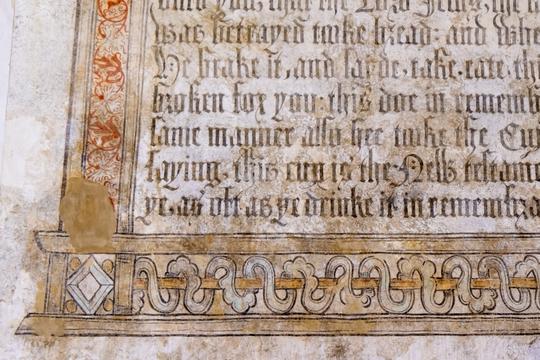 unto you, that the Lord Jesus, the
was betrayed tooke bread: and whe
He brake it, and sayde, take, eate, th
broken for you: this doe in rememb
same manner also hee tooke the Cu
saying, this cup is the New testame
ye, as oft as ye drinke it in remembra